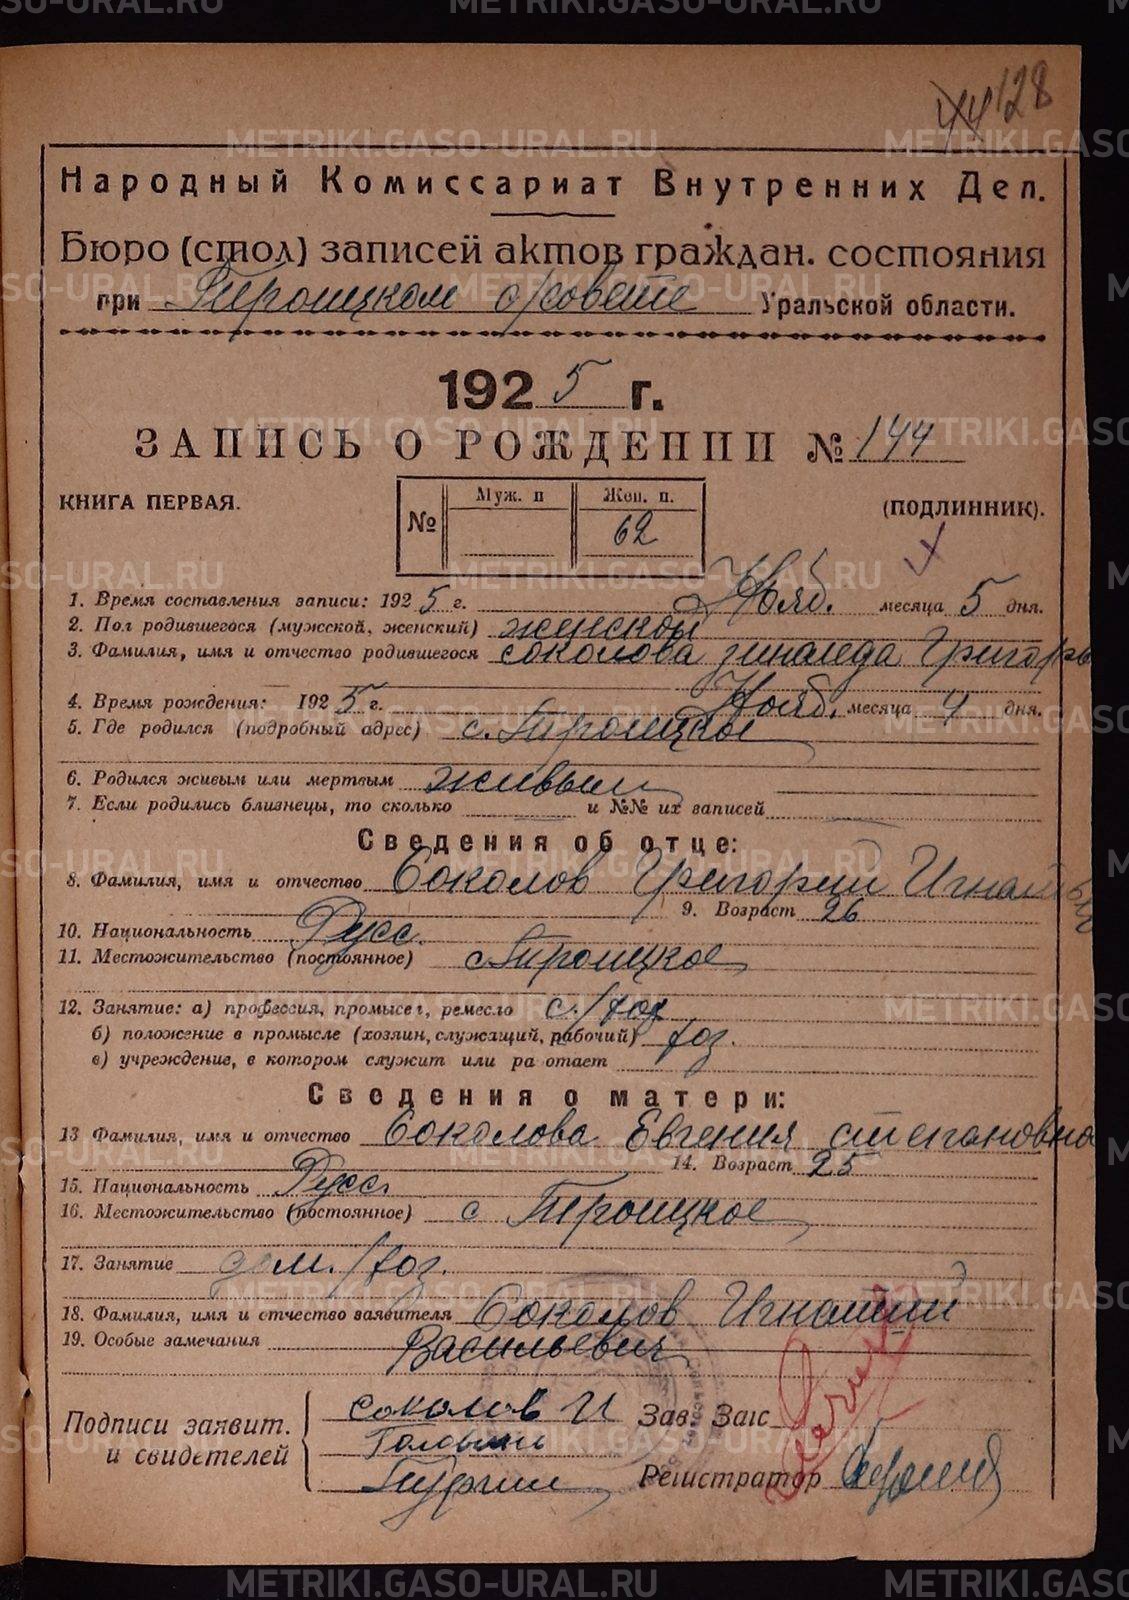 METRIKI.GASO-URAL.RU
44 128
Народный Комиссариат Внутренних Дел.
Бюро (стол) записей актов граждан. состояния
при Троицком с/совете Уральской области.
1925 г.
ЗАПИСЬ О РОЖДЕНИИ № 144
КНИГА ПЕРВАЯ.
(ПОДЛИННИК).
№ Муж. п Жен. п.
62
1. Время составления записи: 1925 г. Нояб. месяца 5 дня.
2. Пол родившегося (мужской, женский) женской
3. Фамилия, имя и отчество родившегося Соколова Зинаида Григорь
4. Время рождения: 1925 г. Нояб. месяца 4 дня.
5. Где родился (подробный адрес) с. Троицкое
6. Родился живым или мертвым живым
7. Если родились близнецы, то сколько и №№ их записей
Сведения об отце:
8. Фамилия, имя и отчество Соколов Григорий Игнатьев
9. Возраст 26
10. Национальность Русс.
11. Местожительство (постоянное) с. Троицкое
12. Занятие: а) профессия, промысел, ремесло с./хоз
б) положение в промысле (хозяин, служащий, рабочий) хоз.
в) учреждение, в котором служит или ра отает
Сведения о матери:
13 Фамилия, имя и отчество Соколова Евгения Степановна
14. Возраст 25
15. Национальность Русс.
16. Местожительство (постоянное) с Троицкое
17. Занятие дом./хоз.
18. Фамилия, имя и отчество заявителя Соколов Игнатий
19. Особые замечания Васильевич
Подписи заявит. и свидетелей
Соколов И
Зав. Загс
Регистратор